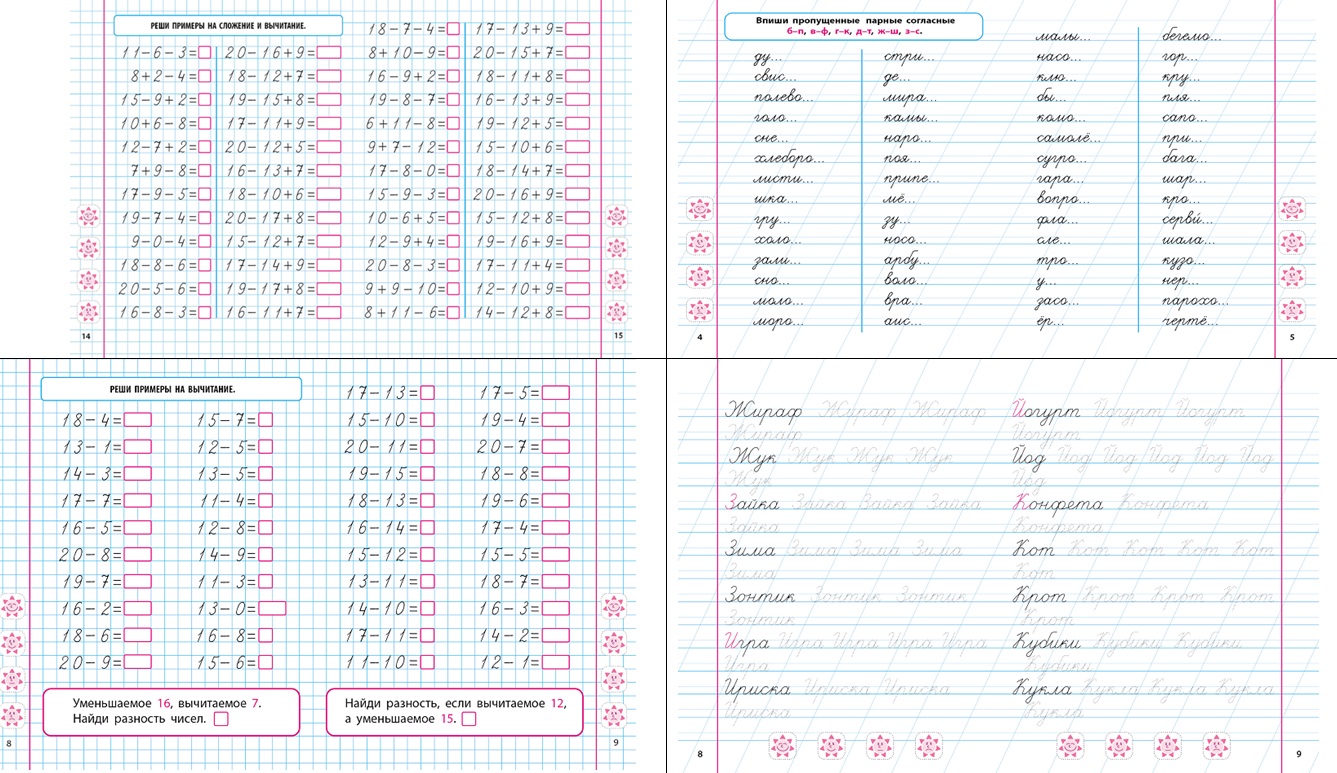 РЕШИ ПРИМЕРЫ НА СЛОЖЕНИЕ И ВЫЧИТАНИЕ.
11-6-3=
8+2-4=
15-9+2=
10+6-8=
12-7+2=
7+9-8=
17-9-5=
19-7-4=
9-0-4=
18-8-6=
20-5-6=
16-8-3=
20-16+9=
18-12+7=
19-15+8=
17-11+9=
20-12+5=
16-13+7=
18-10+6=
20-17+8=
15-12+7=
17-14+9=
19-17+8=
16-11+7=
14
18-7-4=
8+10-9=
16-9+2=
19-8-7=
6+11-8=
9+7-12=
17-8-0=
15-9-3=
10-6+5=
12-9+4=
20-8-3=
9+9-10=
8+11-6=
17-13+9=
20-15+7=
18-11+8=
16-13+9=
19-12+5=
15-10+6=
18-14+7=
20-16+9=
15-12+8=
19-16+9=
17-11+4=
12-10+9=
14-12+8=
15
Впиши пропущенные парные согласные
б–п, в–ф, г–к, д–т, ж–ш, з–с.
ду...
свис...
полево...
голо...
сне...
хлеборо...
листи...
шка...
гру...
холо...
зали...
сно...
моло...
моро...
стри...
де...
мира...
камы...
наро...
поя...
припе...
мё...
зу...
носо...
арбу...
воло...
вра...
аис...
4
малы...
насо...
клю...
бы...
комо...
самолё...
сугро...
гара...
вопро...
фла...
сле...
тро...
у...
засо...
ёр...
бегемо...
гор...
кру...
пля...
сапо...
при...
бага...
шар...
кро...
серви́...
шала...
кузо...
нер...
парохо...
чертё...
5
РЕШИ ПРИМЕРЫ НА ВЫЧИТАНИЕ.
18-4=
13-1=
14-3=
17-7=
16-5=
20-8=
19-7=
16-2=
18-6=
20-9=
15-7=
12-5=
13-5=
11-4=
12-8=
14-9=
11-3=
13-0=
16-8=
15-6=
Уменьшаемое 16, вычитаемое 7.
Найди разность чисел.
8
17-13=
15-10=
20-11=
19-15=
18-13=
16-14=
15-12=
13-11=
14-10=
17-11=
11-10=
17-5=
19-4=
20-7=
18-8=
19-6=
17-4=
15-5=
18-7=
16-3=
14-2=
12-1=
Найди разность, если вычитаемое 12,
а уменьшаемое 15.
9
Жираф Жираф Жираф
Жираф
Жук Жук Жук Жук
Жук
Зайка Зайка Зайка Зайка
Зайка
Зима Зима Зима Зима
Зима
Зонтик Зонтик Зонтик
Зонтик
Игра Игра Игра Игра Игра
Игра
Ириска Ириска Ириска
Ириска
8
Йогурт Йогурт Йогурт
Йогурт
Йод Йод Йод Йод Йод Йод
Йод
Конфета Конфета
Конфета
Кот Кот Кот Кот Кот
Кот
Крот Крот Крот Крот
Крот
Кубики Кубики Кубики
Кубики
Кукла Кукла Кукла Кукла
Кукла
9